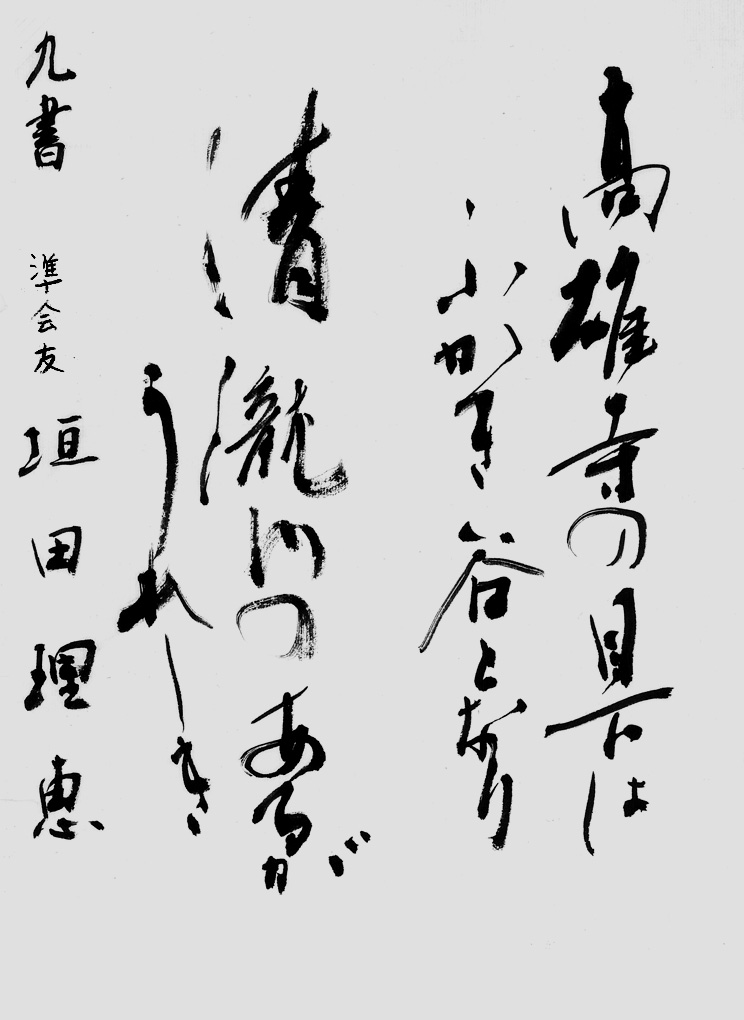 高雄寺の目下は
ふかき谷となり
清瀧川の あるが
うれしき
九書 準会友 垣田理恵